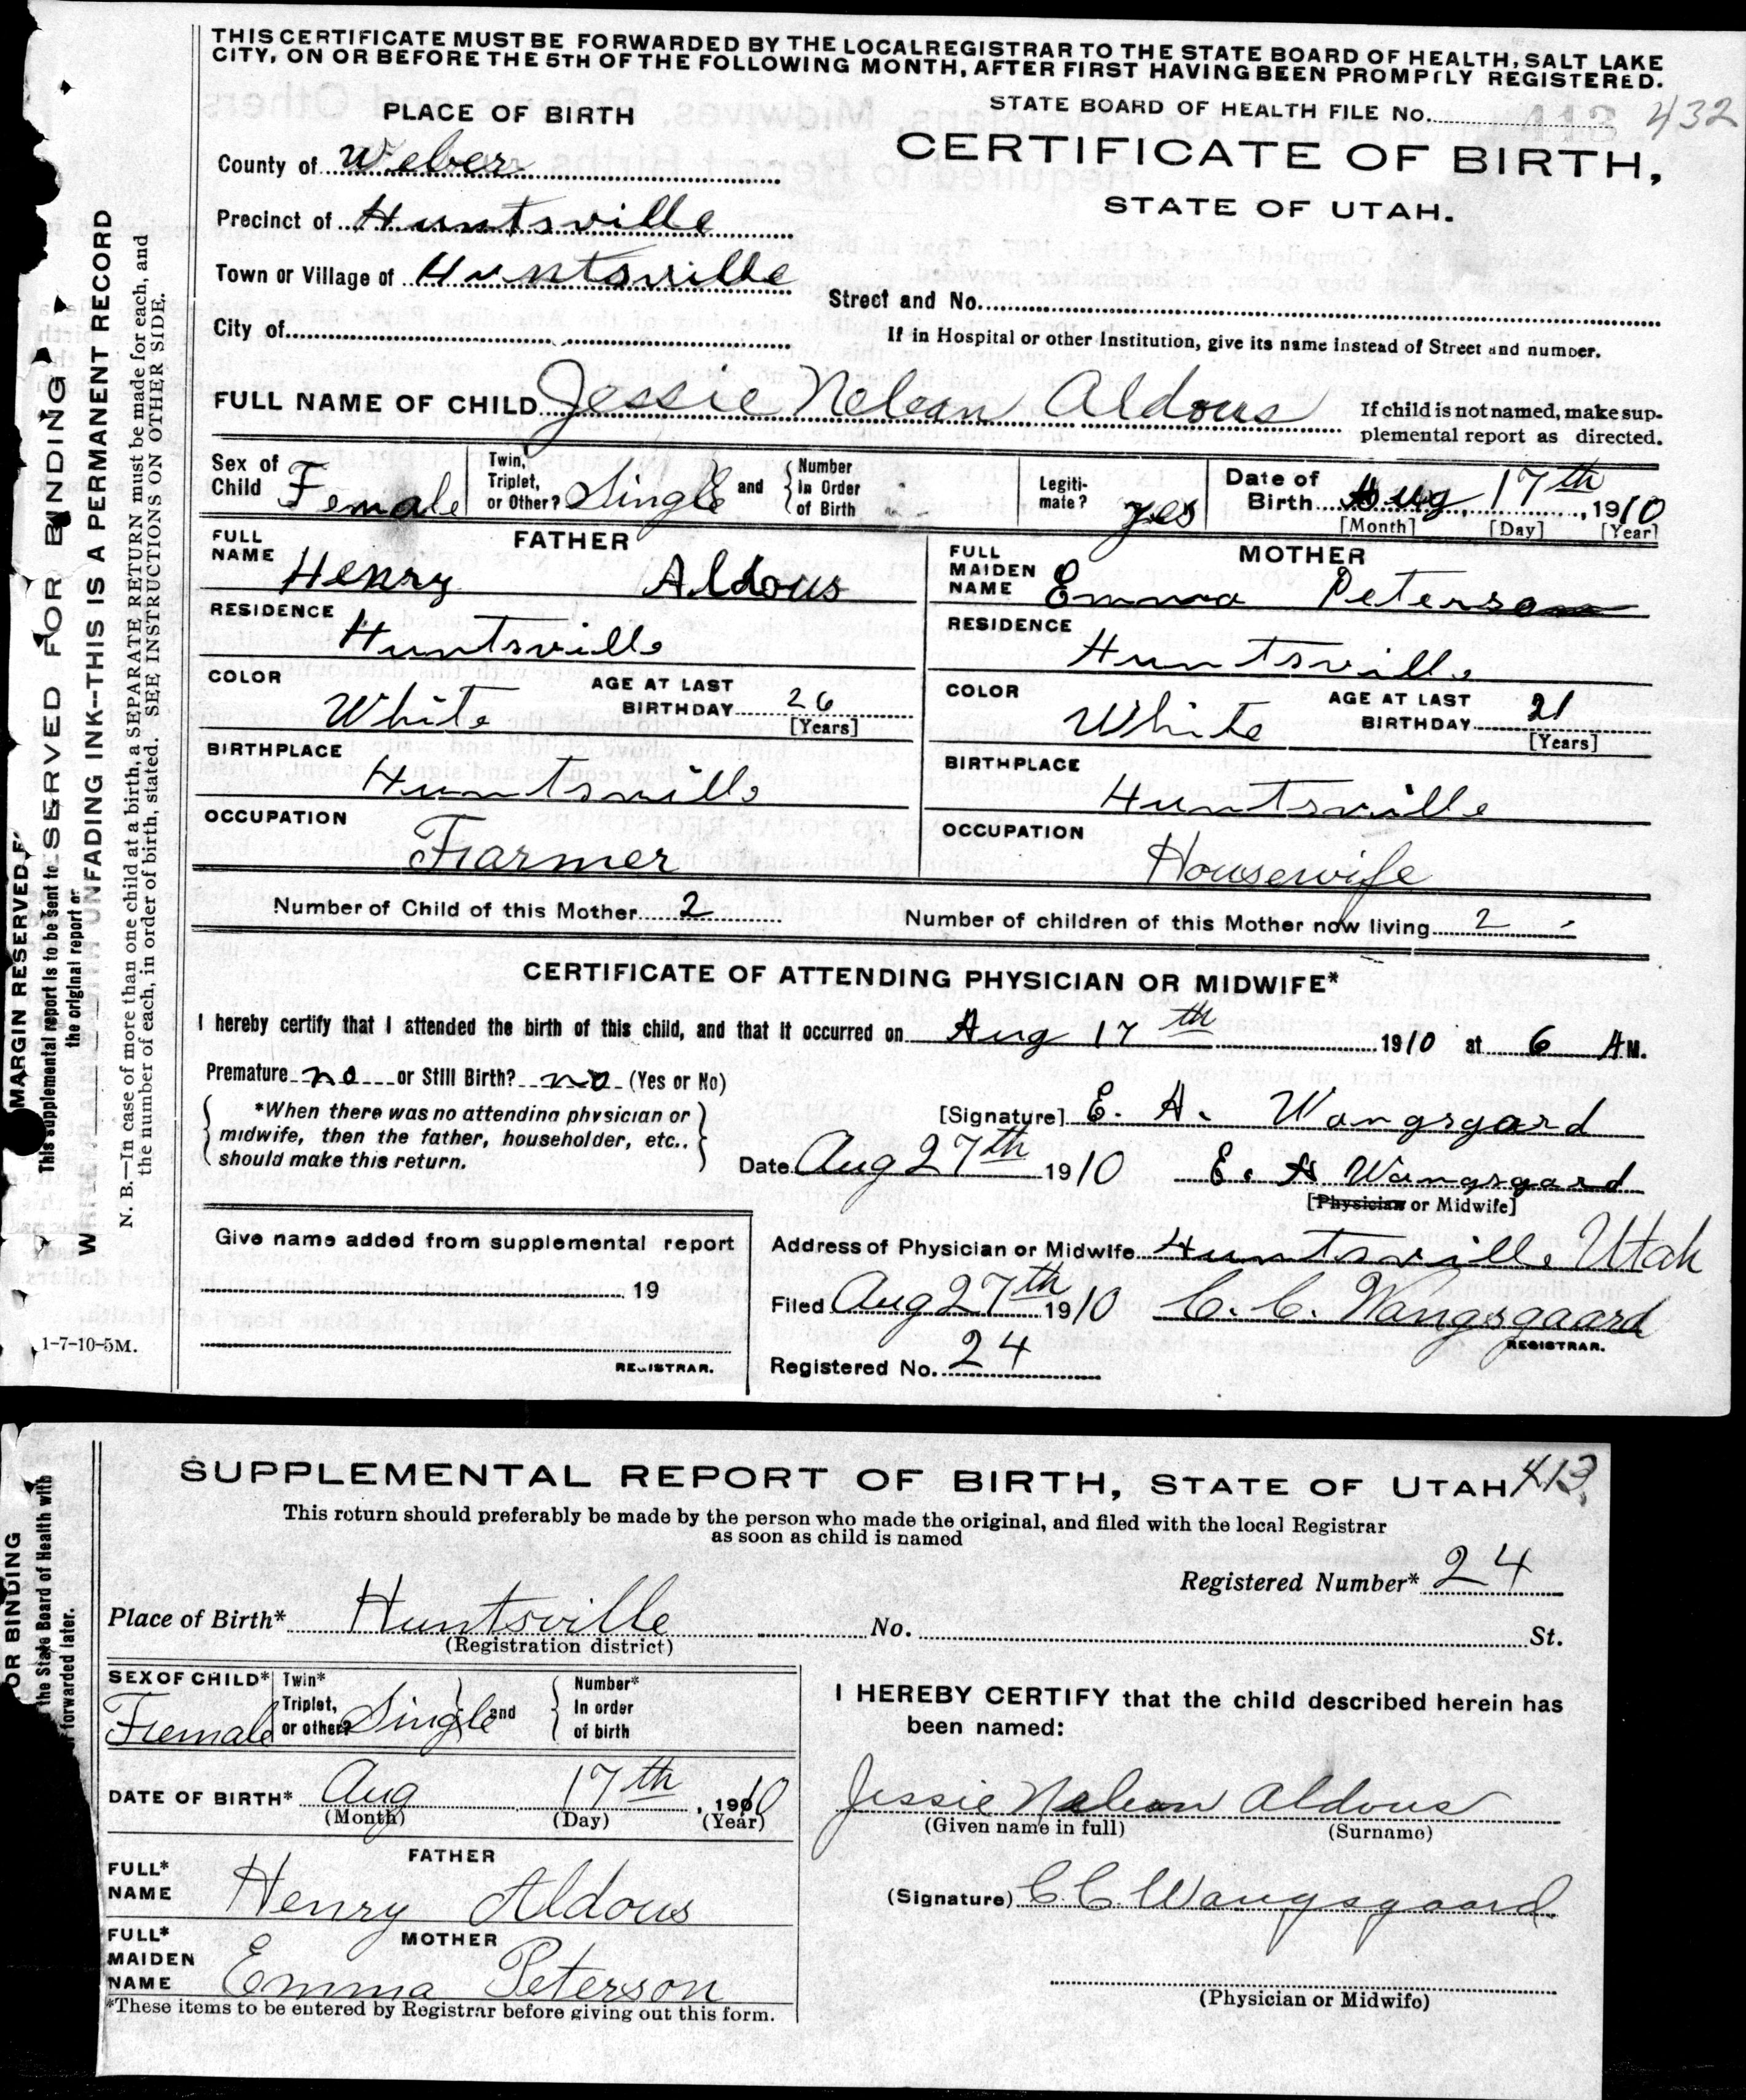 THIS CERTIFICATE MUST BE FORWARDED BY THE LOCAL REGISTRAR TO THE STATE BOARD OF HEALTH, SALT LAKE
CITY, ON OR BEFORE THE 5TH OF THE FOLLOWING MONTH, AFTER FIRST HAVING BEEN PROMPTLY REGISTERED.
PLACE OF BIRTH
STATE BOARD OF HEALTH FILE No. 432
County of Weber
CERTIFICATE OF BIRTH,
STATE OF UTAH.
Precinct of Huntsville
Town or Village of Huntsville
Street and No.
City of
If in Hospital or other Institution, give its name instead of Street and number.
FULL NAME OF CHILD Jessie Nelean Aldous
If child is not named, make sup-
plemental report as directed.
Sex of Child Female
Twin, Triplet, or Other? Single and Number in Order of Birth
Legiti-mate? yes
Date of Birth Aug. 17th, 1910
[Month] [Day] [Year]
FATHER
FULL NAME Henry Aldous
RESIDENCE Huntsville
COLOR White AGE AT LAST BIRTHDAY 26 [Years]
BIRTHPLACE Huntsville
OCCUPATION Farmer
MOTHER
FULL MAIDEN NAME Emma Peterson
RESIDENCE Huntsville
COLOR White AGE AT LAST BIRTHDAY 21 [Years]
BIRTHPLACE Huntsville
OCCUPATION Housewife
Number of Child of this Mother 2 Number of children of this Mother now living 2
CERTIFICATE OF ATTENDING PHYSICIAN OR MIDWIFE*
I hereby certify that I attended the birth of this child, and that it occurred on Aug 17th 1910 at 6 AM.
Premature no or Still Birth? no (Yes or No)
*When there was no attending physician or
midwife, then the father, householder, etc.,
should make this return.
[Signature] E. A. Wangsgard
Date Aug 27th 1910 E. A Wangsgard
[Physician or Midwife]
Give name added from supplemental report
19
REGISTRAR.
Address of Physician or Midwife Huntsville Utah
Filed Aug 27th 1910 C. C. Wangsgaard
REGISTRAR.
Registered No. 24
MARGIN RESERVED F
This supplemental report is to be sent to
the original report or
SERVED FOR BINDING
UNFADING INK--THIS IS A PERMANENT RECORD
N. B.—In case of more than one child at a birth, a SEPARATE RETURN must be made for each, and
the number of each, in order of birth, stated. SEE INSTRUCTIONS ON OTHER SIDE.
1-7-10-5M.
SUPPLEMENTAL REPORT OF BIRTH, STATE OF UTAH 413
This return should preferably be made by the person who made the original, and filed with the local Registrar
as soon as child is named
Registered Number* 24
Place of Birth* Huntsville No. St.
(Registration district)
SEX OF CHILD* Female
Twin* Triplet, or other? Single and Number* In order of birth
DATE OF BIRTH* Aug 17th, 1910
(Month) (Day) (Year)
FATHER
FULL* NAME Henry Aldous
MOTHER
FULL* MAIDEN NAME Emma Peterson
*These items to be entered by Registrar before giving out this form.
I HEREBY CERTIFY that the child described herein has
been named:
Jessie Nelean Aldous
(Given name in full) (Surname)
(Signature) C C Wangsgaard
(Physician or Midwife)
OR BINDING
the State Board of Health with
forwarded later.